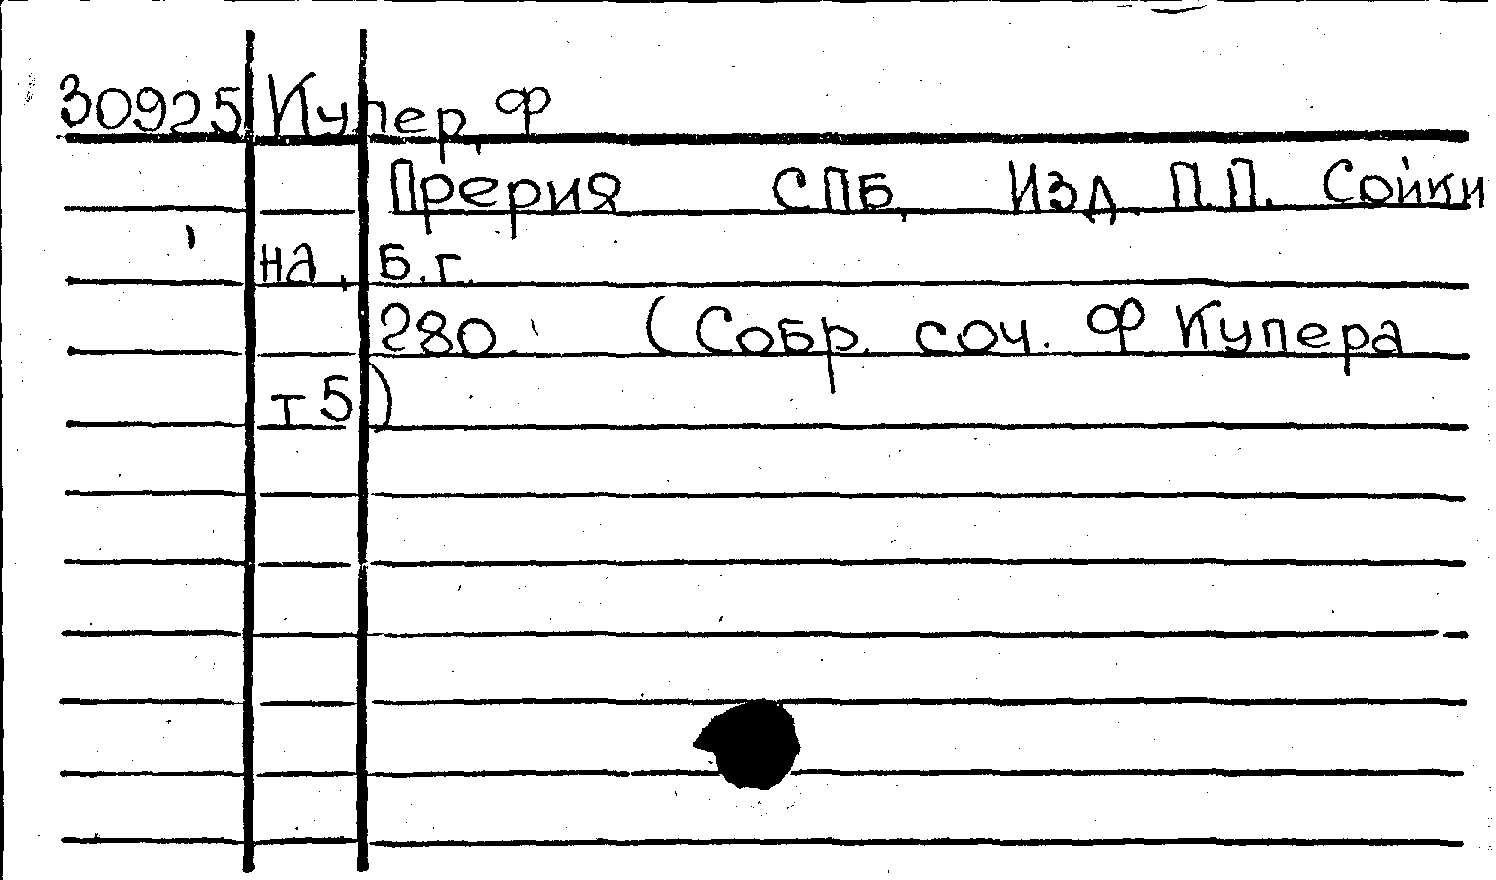 30925 Купер, Ф
Прерия СПБ, Изд. П.П. Сойки
на, Б.г.
280. (Собр. соч. Ф Купера
т 5)